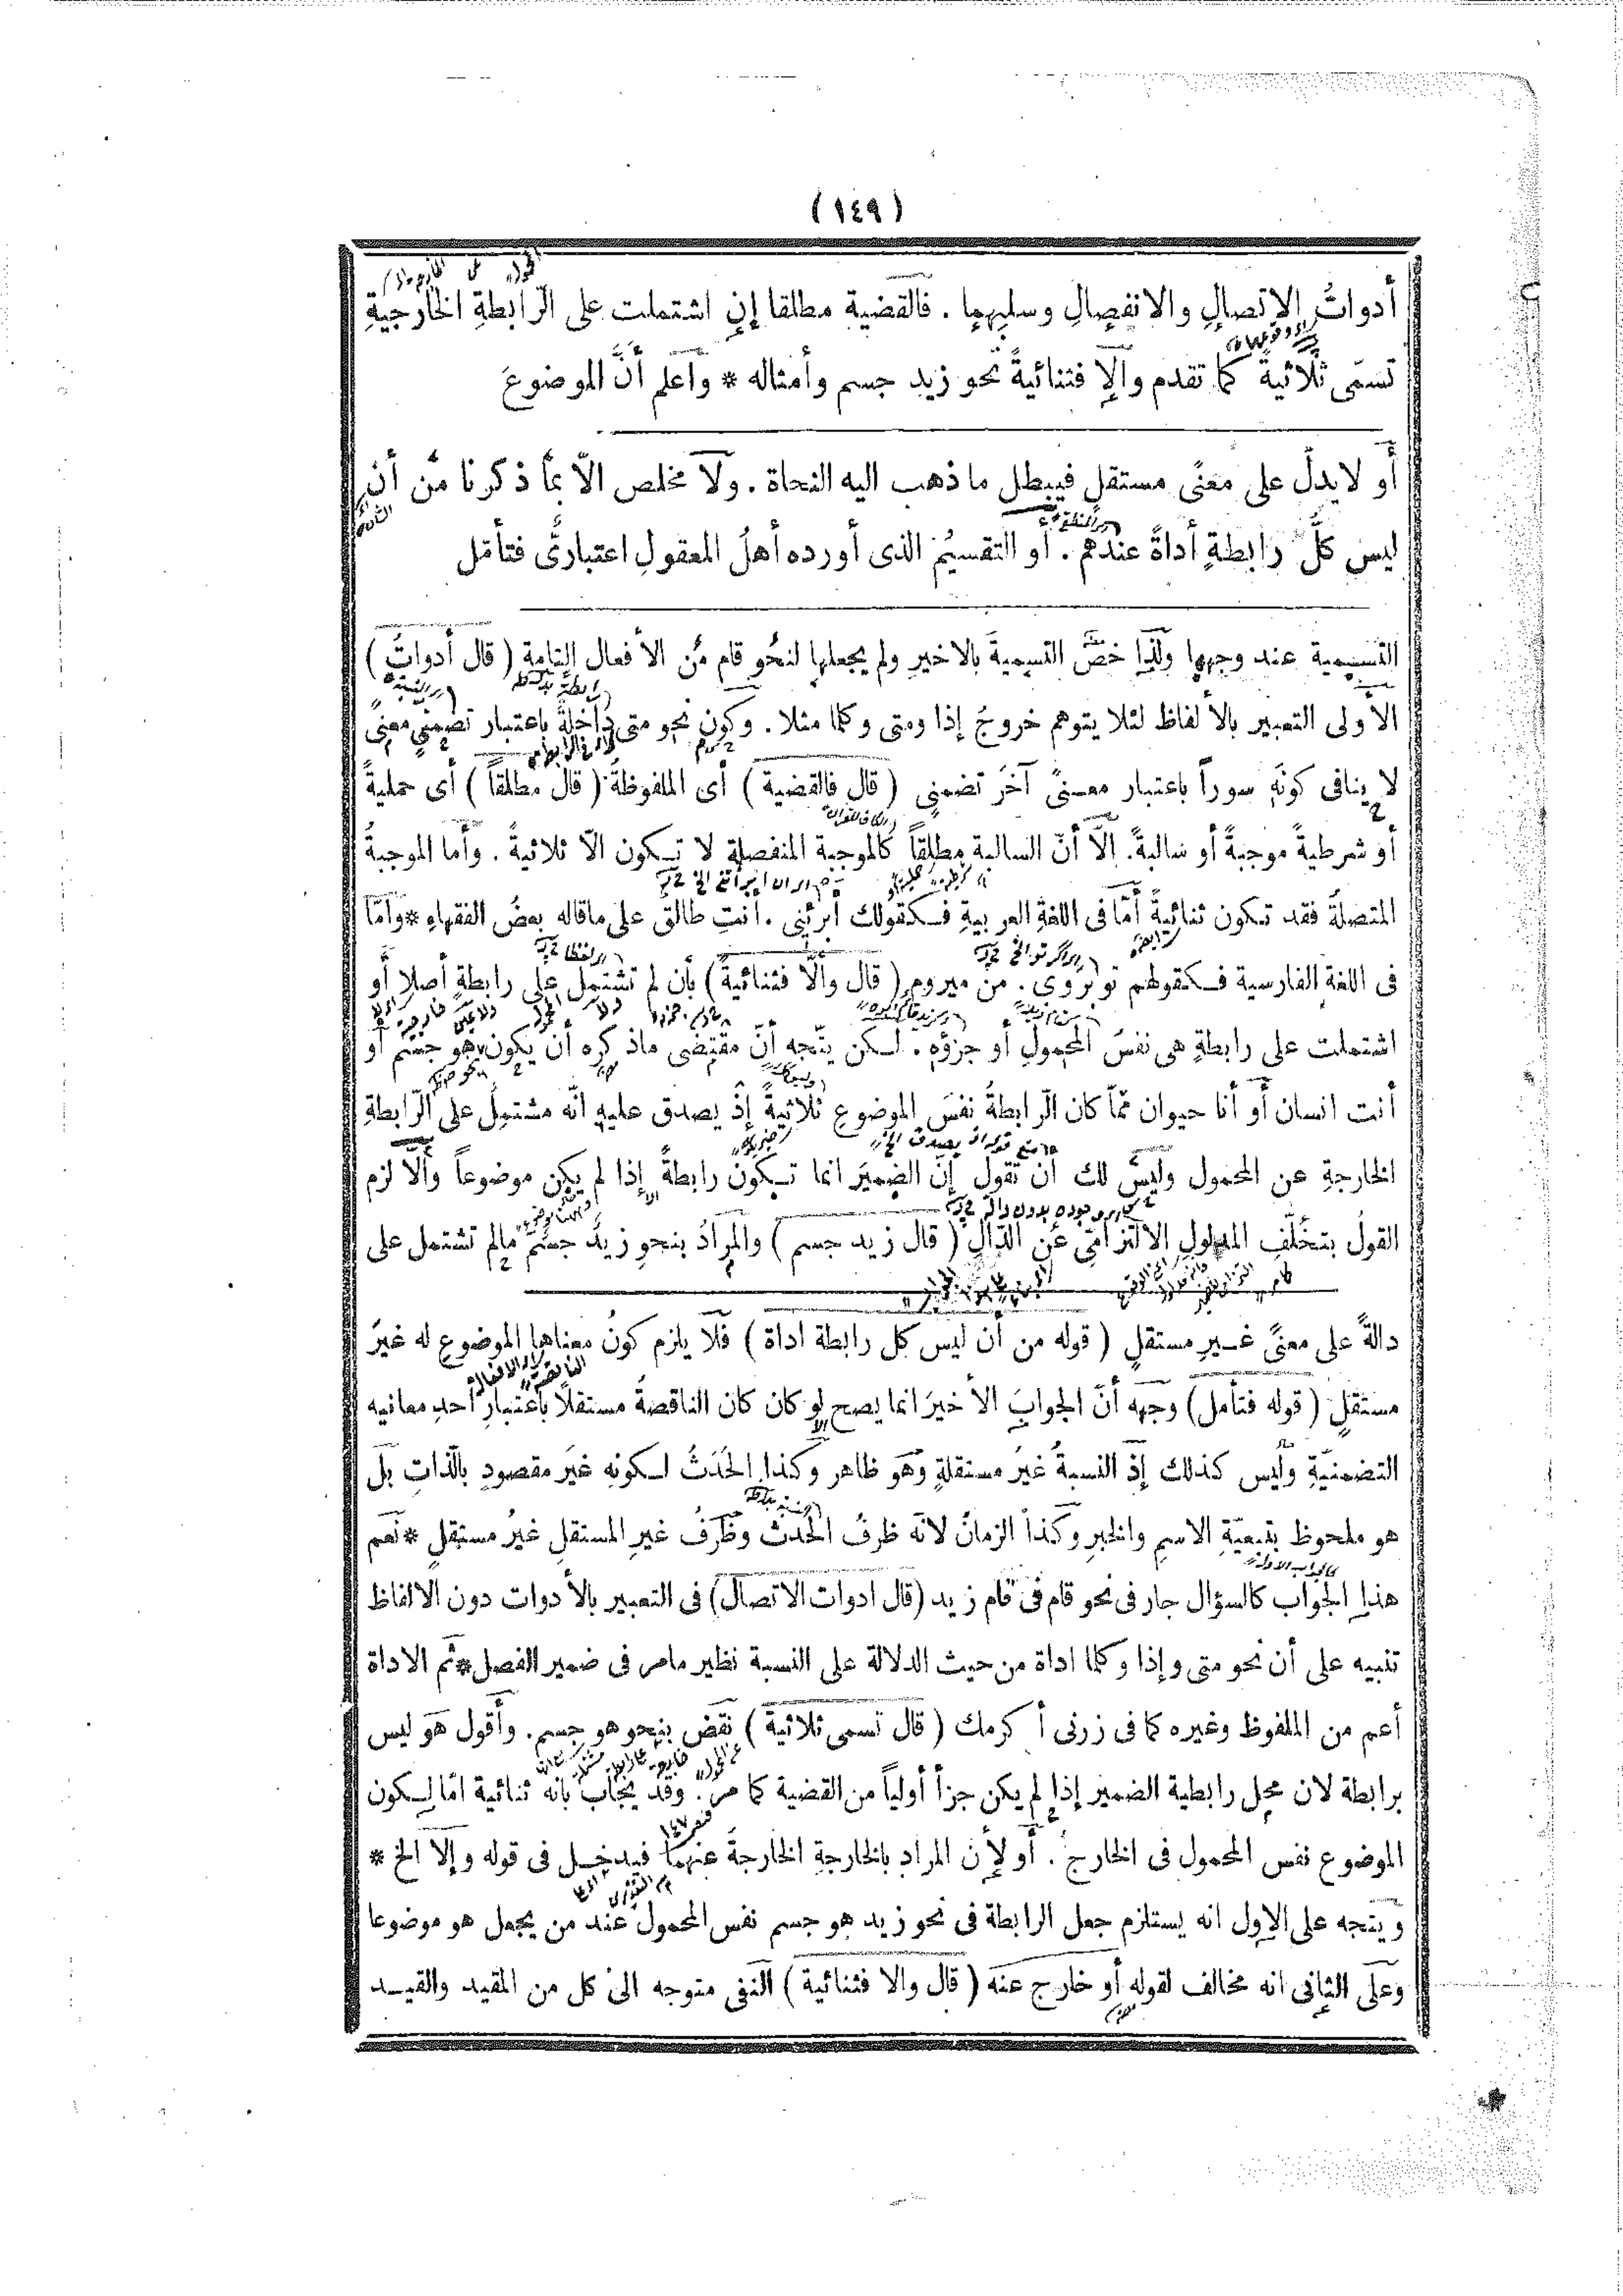 (١٤٩)
أدواتُ الاتصالِ والانفصالِ وسلبِهما . فالقضية مطلقا إنِ اشتملت على الرّابطةِ الخارجيةِ
تسمّى ثلاثيةً كما تقدم وآلاّ فثنائيةً نحو زيد جسم وأمثاله * وآعلم أنَّ الموضوعَ
أو لايدلّ على معنًى مستقلٍ فيبطل ماذهب اليه النحاة . ولا مخلص الاّ بمّا ذكرنا من أن
ليس كلُّ رابطةٍ أداةً عندهم . او التقسيمُ الذى أورده أهلُ المعقولِ اعتبارىٌّ فتأمّل
التسمية عند وجهها ولذا خصّ التسميةَ بالاخيرِ ولم يجعلها لنحو قام من الأفعال التامة ( قال أدواتُ )
الأولى التعبير بالألفاظ لئلا يتوهم خروجُ إذا ومتى وكلما مثلا . وكون نحو متى داخلةً باعتبار تضمنىٍ معنًى
لا ينافى كونَه سوراً باعتبار معنىً آخرَ تضمنىٍ ( قال فالقضية ) أى الملفوظةُ ( قال مطلقاً ) أى حمليةً
أو شرطيةً موجبةً أو سالبةً. الاّ أنّ السالبة مطلقاً كالموجبة المنفصلة لا تكون الاّ ثلاثيةً . وأما الموجبةُ
المتصلةُ فقد تكون ثنائيةً أمّا فى اللغةِ العربيةِ فكقولك أبرئينى . أنتِ طالق على ماقاله بعضُ الفقهاءِ * وأمّا
فى اللغة الفارسية فكقولهم توبروى . من ميروم ( قال والّا فثنائيةً ) بأن لم تشتمل على رابطةٍ أصلا أو
اشتملت على رابطةٍ هى نفسُ المحمولِ أو جزؤه . لكن يتّجه أنّ مقتضى ماذكره أن يكون هو جسم أو
أنت انسان أو أنا حيوان ممّا كان الرّابطةُ نفسَ الموضوعِ ثلاثيةً إذْ يصدق عليه انّه مشتمل على الرّابطةِ
الخارجةِ عن المحمول وليس لك ان تقول إنّ الضميرَ انما تكون رابطةً إذا لم يكن موضوعاً وألّا لزم
القولُ بتخلّفِ المدلولِ الالتزامىّ عن الدّالِ ( قال زيد جسم ) والمرادُ بنحوِ زيدٌ جسمٌ مالم تشتمل على
دالةً على معنًى غيرِ مستقلٍ ( قوله من أن ليس كل رابطة اداة ) فلا يلزم كونُ معناها الموضوع له غيرَ
مستقلٍ ( قوله فتأمل ) وجهه أنّ الجوابَ الأخيرَ انما يصح لو كان كان الناقصةُ مستقلًا باعتبارِ أحدِ معانيه
التضمنيّةِ وليس كذلك إذِ النسبةُ غيرُ مستقلةٍ وهو ظاهر وكذا الحَدَثُ لكونِه غيرَ مقصودٍ بالذاتِ بل
هو ملحوظ بتبعيّةِ الاسمِ والخبرِ وكذا الزمانُ لانّه ظرفُ الحدث وظرفُ غيرِ المستقلِ غيرُ مستقلٍ * نعم
هذا الجواب كالسؤال جار فى نحو قام فى قام زيد ( قال ادوات الاتصال ) فى التعبير بالأدوات دون الالفاظ
تنبيه على أن نحو متى وإذا وكلما اداة من حيث الدلالة على النسبة نظير مامر فى ضمير الفصل * ثم الاداة
أعم من الملفوظ وغيره كما فى زرنى أكرمك ( قال تسمى ثلاثية ) نقض بنحو هو جسم . وأقول هو ليس
برابطة لان محل رابطية الضمير إذا لم يكن جزأ أولياً من القضية كما مر . وقد يجاب بانه ثنائية امّا لكون
الموضوع نفس المحمول فى الخارج . أو لأن المراد بالخارجةِ الخارجةُ عنهما فيدخل فى قوله وإلا الخ *
ويتجه على الاول انه يستلزم جعل الرابطة فى نحو زيد هو جسم نفس المحمول عند من يجعل هو موضوعا
وعلى الثانى انه مخالف لقوله أو خارج عنه ( قال والا فثنائية ) النفى متوجه الى كل من المقيد والقيد